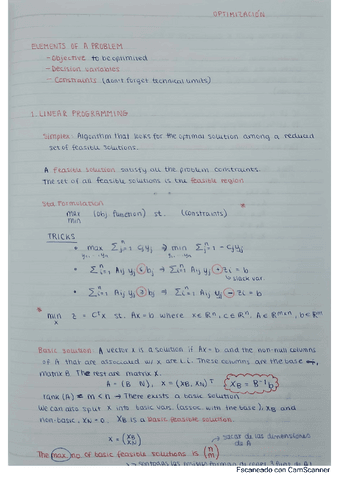 OPTIMIZACIÓN
ELEMENTS OF A PROBLEM
- Objective to be optimised
- Decision variables
- Constraints (don't forget technical limits)
1. LINEAR PROGRAMMING
Simplex: Algorithm that looks for the optimal solution among a reduced
set of feasible solutions.
A feasible solution satisfy all the problem constraints.
The set of all feasible solutions is the feasible region.
Std Formulation
max min (obj. function) st. (constraints)
TRICKS
• max Σⁿⱼ₌₁ cⱼyⱼ ⇒ min Σⁿⱼ₌₁ - cⱼyⱼ
y₁... yₙ y₁... yₙ
• Σⁿⱼ₌₁ Aᵢⱼ yⱼ ≤ bⱼ ⇒ Σⁿⱼ₌₁ Aᵢⱼ yⱼ + zᵢ = b
slack var.
• Σⁿⱼ₌₁ Aᵢⱼ yⱼ ≥ bⱼ ⇒ Σⁿⱼ₌₁ Aᵢⱼ yⱼ - zᵢ = b
* min z = Cᵀx st. Ax = b where x ∈ Rⁿ, c ∈ Rⁿ, A ∈ Rᵐˣⁿ, b ∈ Rᵐ
x
Basic solution: A vector x is a solution if Ax = b and the non-null columns
of A that are associated w/ x are l.i. These columns are the base →
matrix B. The rest are matrix N.
A = (B N), X = (XB, XN)ᵀ XB = B⁻¹b
rank (A) = m < n → There exists a basic solution
We can also split X into basic vars (assoc. with the base), XB and
non-basic, XN = 0. XB is a basic feasible solution.
X = (XB XN) → sacar de las dimensiones
de A
The max no. of basic feasible solutions is (n m)
Escaneado con CamScanner